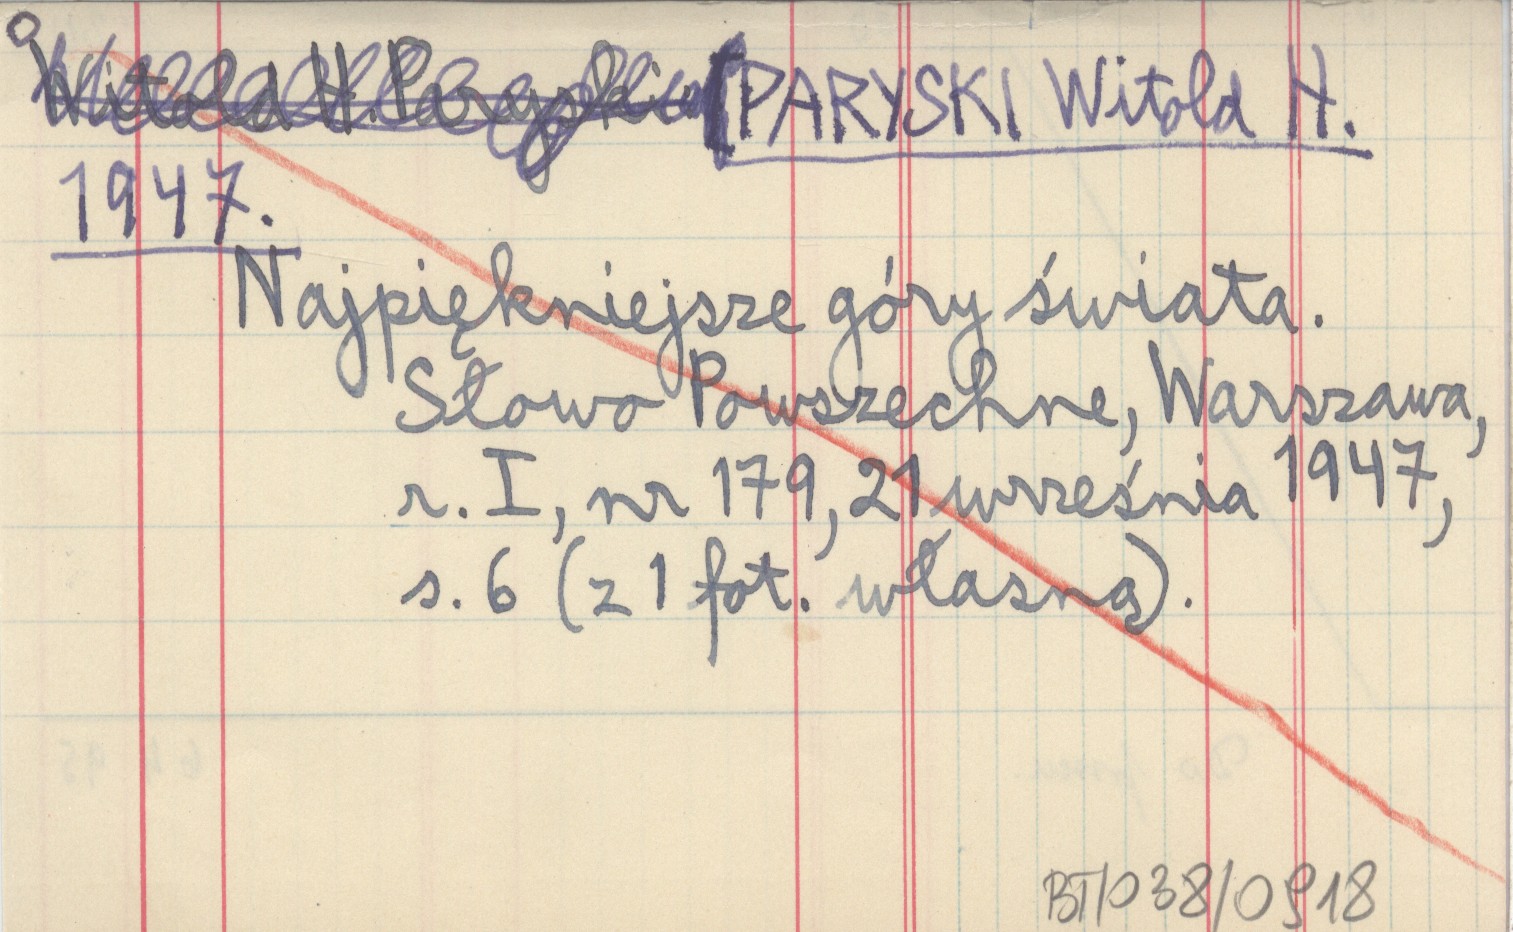 Witold H. Paryski [PARYSKI Witold H.
1947.
Najpiękniejsze góry świata.
Słowo Powszechne, Warszawa,
r. I, nr 179, 21 września 1947,
s. 6 (z 1 fot. własną).
BT/038/0918